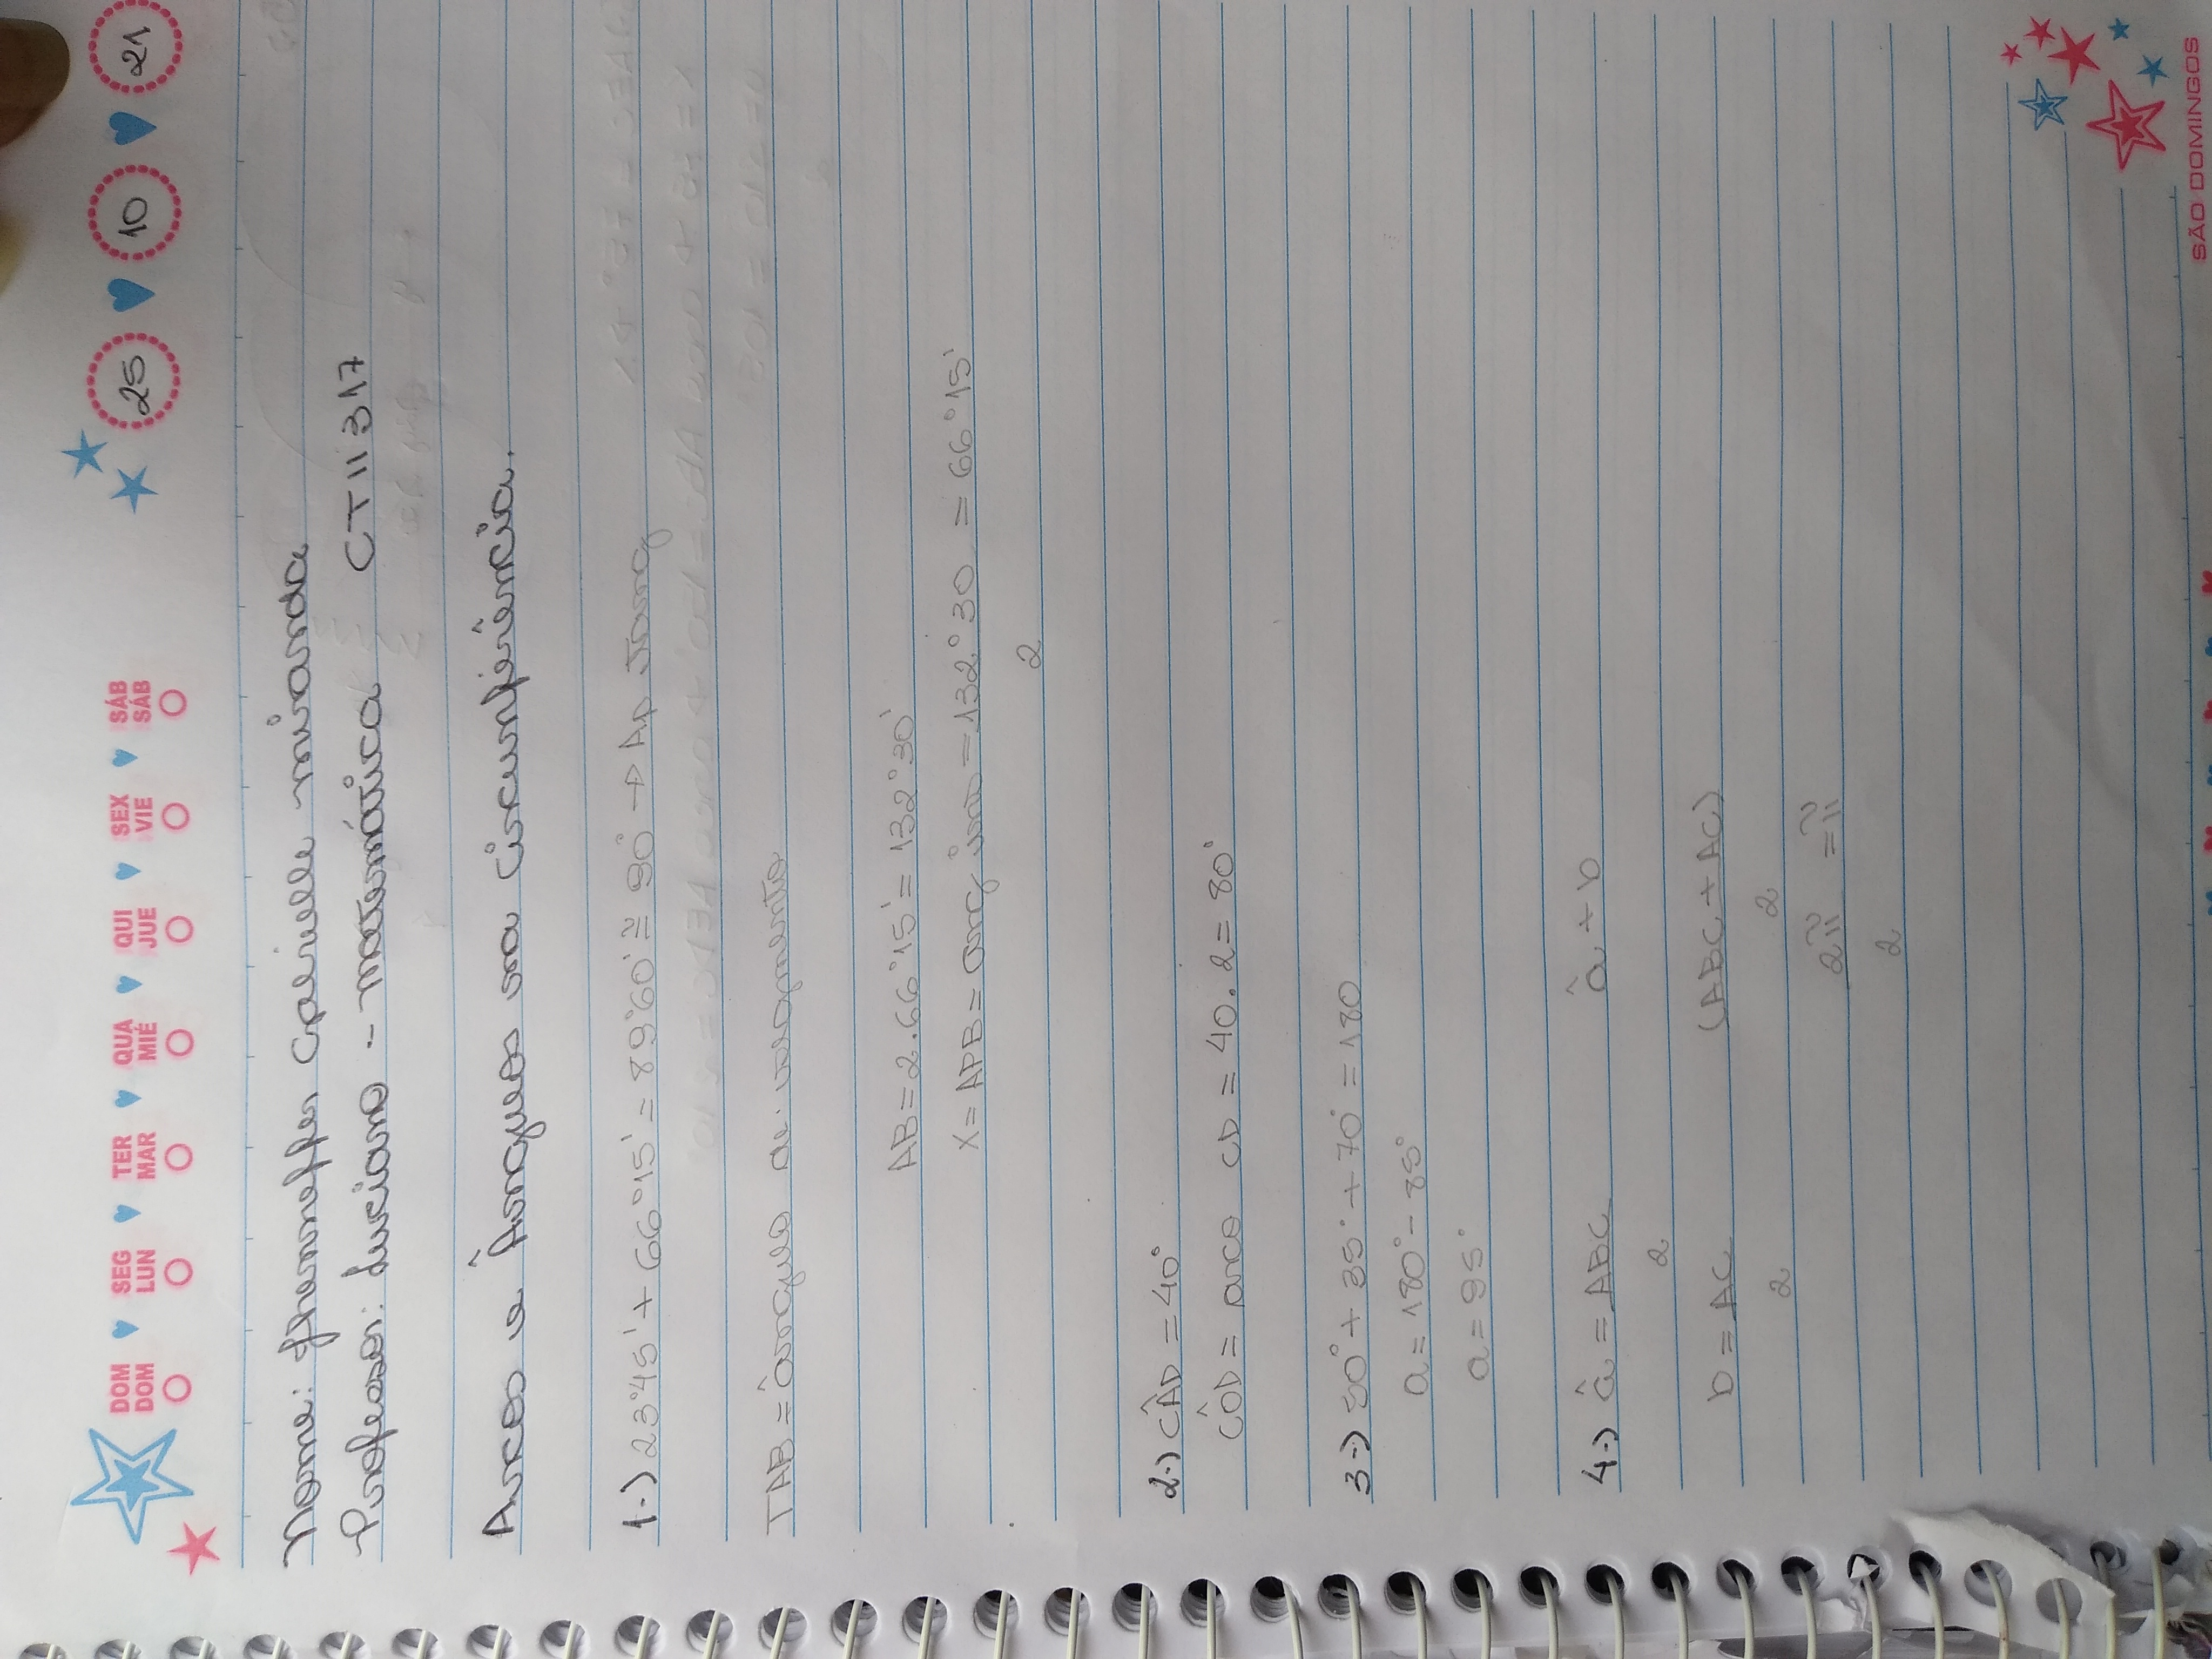 DOM SEG TER QUA QUI SEX SÁB
DOM LUN MAR MIÉ JUE VIE SÁB
25 10 21
Nome: Jhenneffer Gabrielle Miranda
Professor: Luciano - Matemática CTII 317
Arcos e Ângulos na Circunferência.
1-) 23°45' + 66°15' = 89°60' ≅ 90° → Ap Tang
TAB = ângulo de segmento
AB = 2.66°15' = 132°30'
X = APB = ang ins = 132°30 = 66°15'
2
2-) CÂD = 40°
CÔD = arco CD = 40.2 = 80°
3-) 50° + 35° + 70° = 180
a = 180° - 85°
a = 95°
4-) â = ABC â + b
2
b = AC (ABC + AC)
2 2
2π = π
2
SÃO DOMINGOS